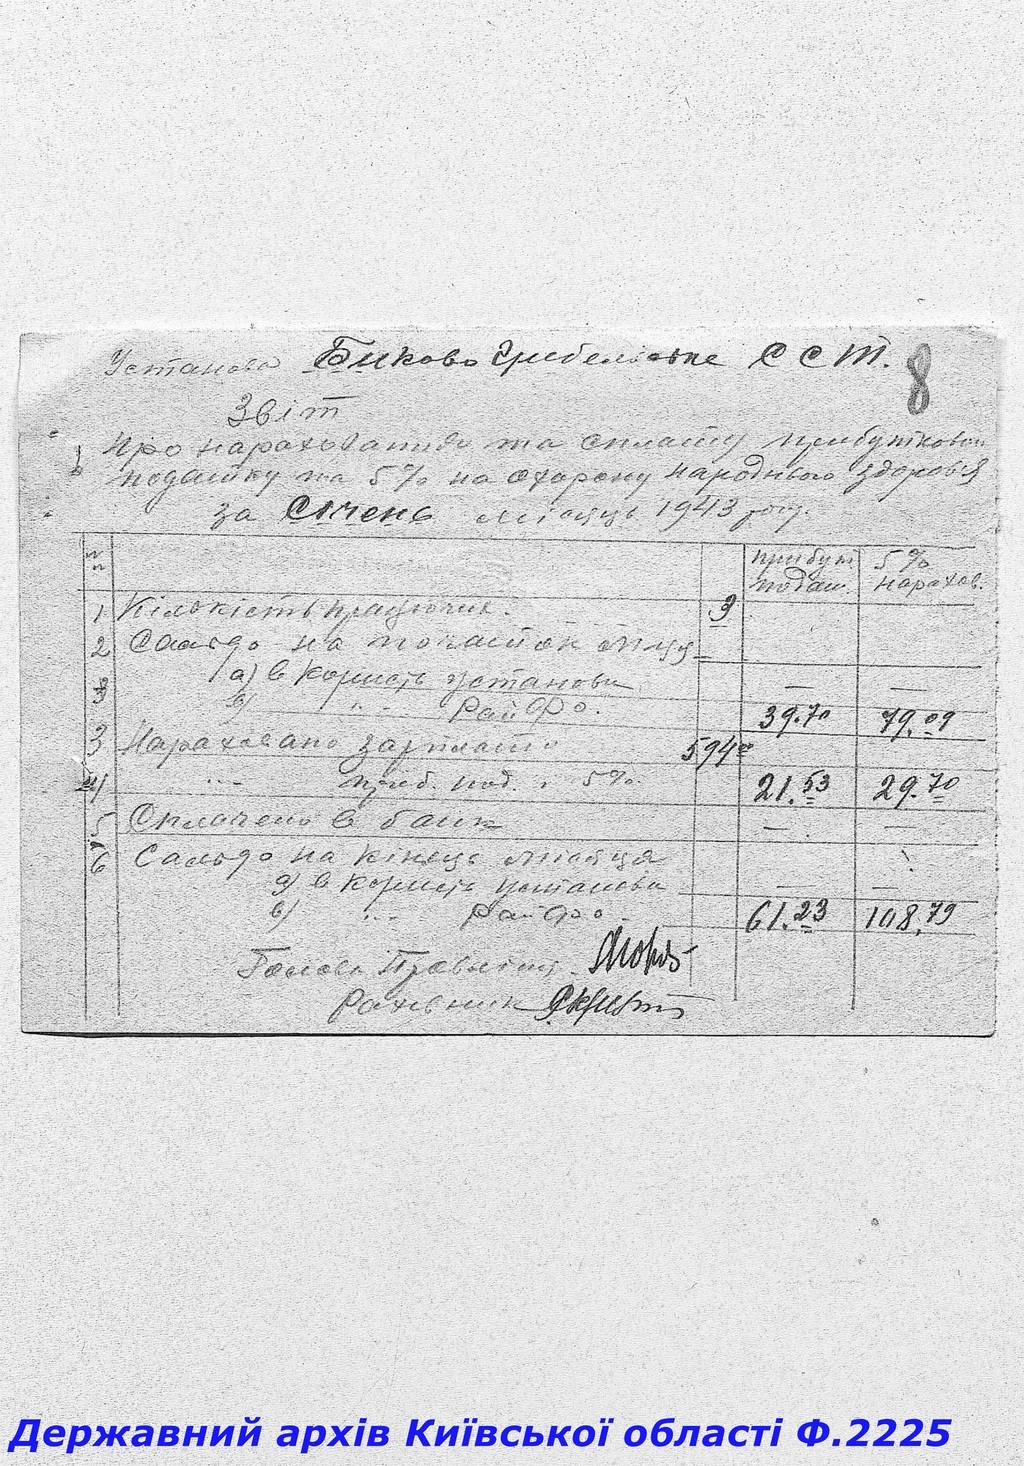 Установа Биково Гребельське ССТ.
8
Звіт
Про нарахованих та сплату прибутковою
податку та 5% на охорону народнього здоровья
за Січень місяць 1943 року.
прибут 5%
подат. нарахов.
1 Кількість працюючих. 3
2 Сальдо на початок м-ця
а) в користь установи — —
в) " - РайФо. 39.70 79.09
3 Нараховано зарплати 594
4) " - приб. под. і 5% 21.53 29.70
5 Сплачено в банк — —
6 Сальдо на кінець місяця
а) в користь установи — —
в) " - РайФо - 61.23 108.79
Голова Правління
Рахівник
Державний архів Київської області Ф.2225